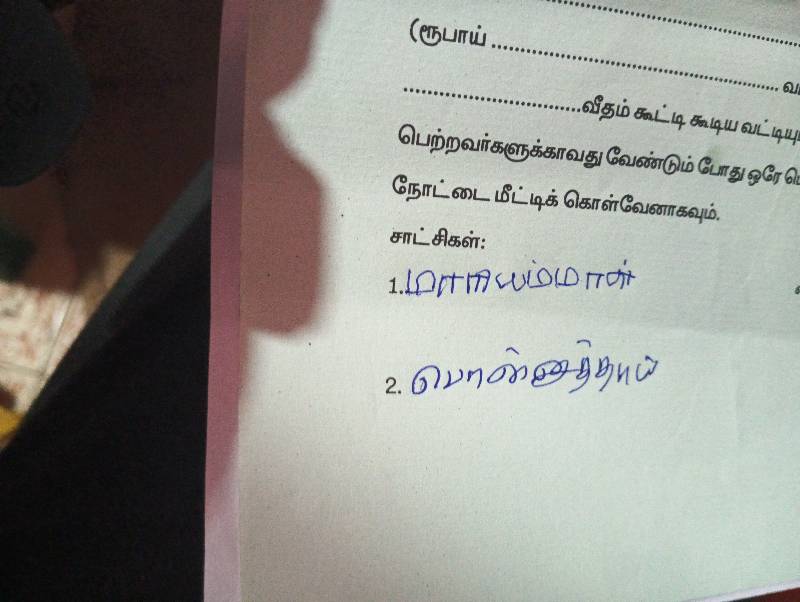 (ரூபாய் ........................................................ வ
................................வீதம் கூட்டி கூடிய வட்டியு
பெற்றவர்களுக்காவது வேண்டும் போது ஒரே
நோட்டை மீட்டிக் கொள்வேனாகவும்.
சாட்சிகள்:
1. மாரியம்மாள்
2. பொன்னுத்தாய்